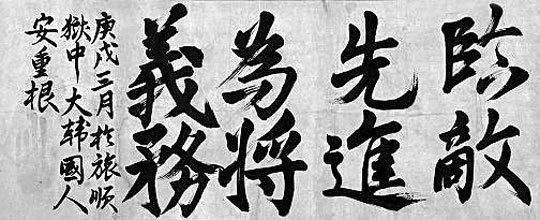 臨敵
先進
為将
義務
庚戌三月於旅順
獄中 大韩國人
安重根